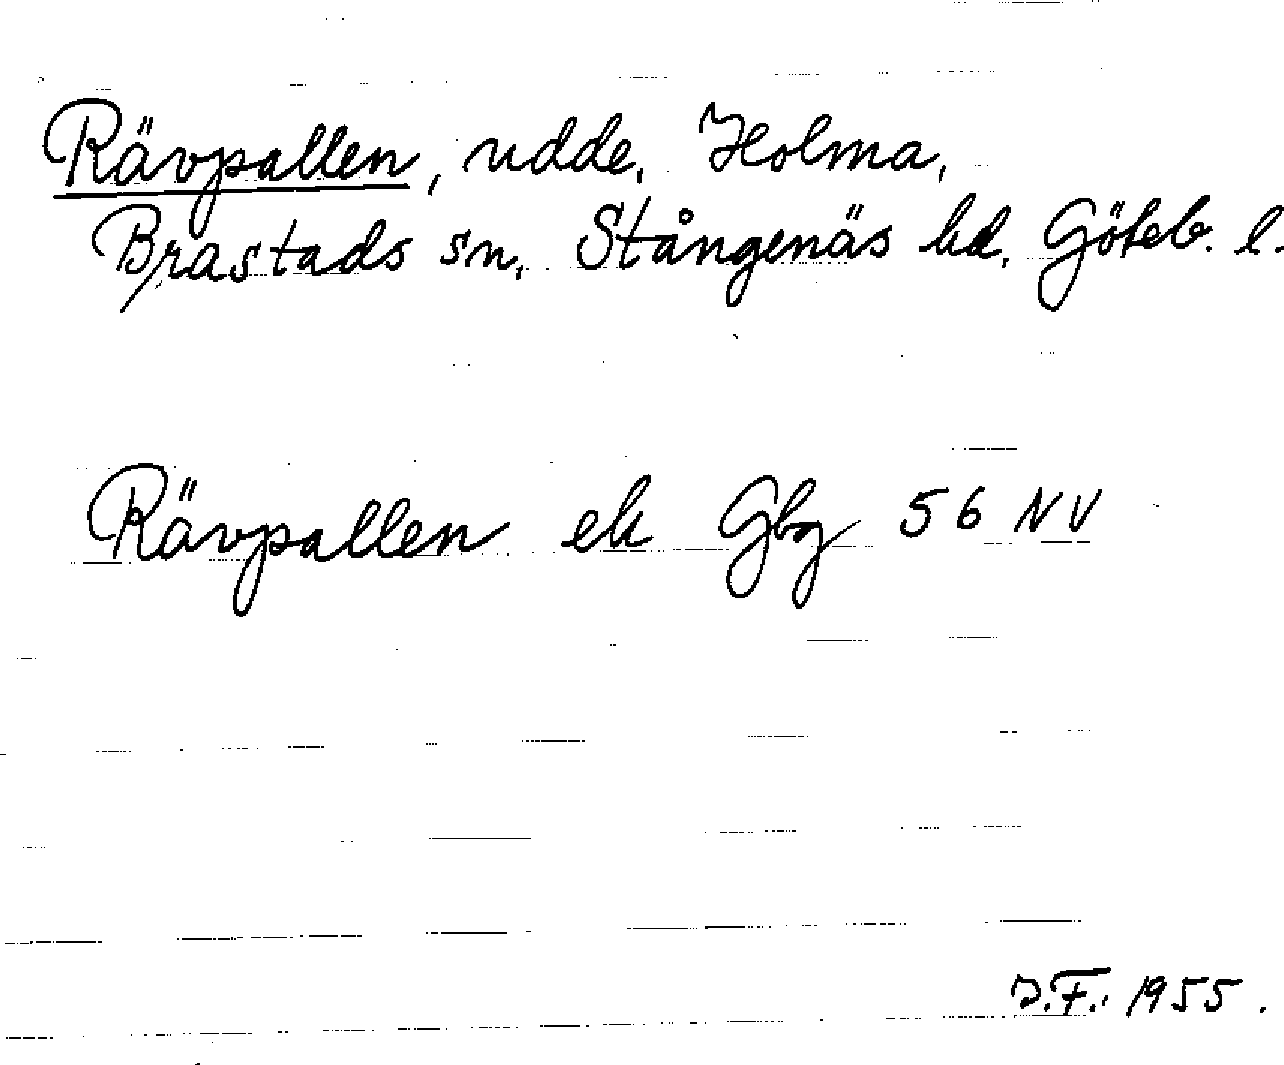 Rävpallen, udde, Holma,
Brastads sn, Stångenäs hd, Göteb. l.
Rävpallen ek Gbg 56 NV
D.F. 1955.